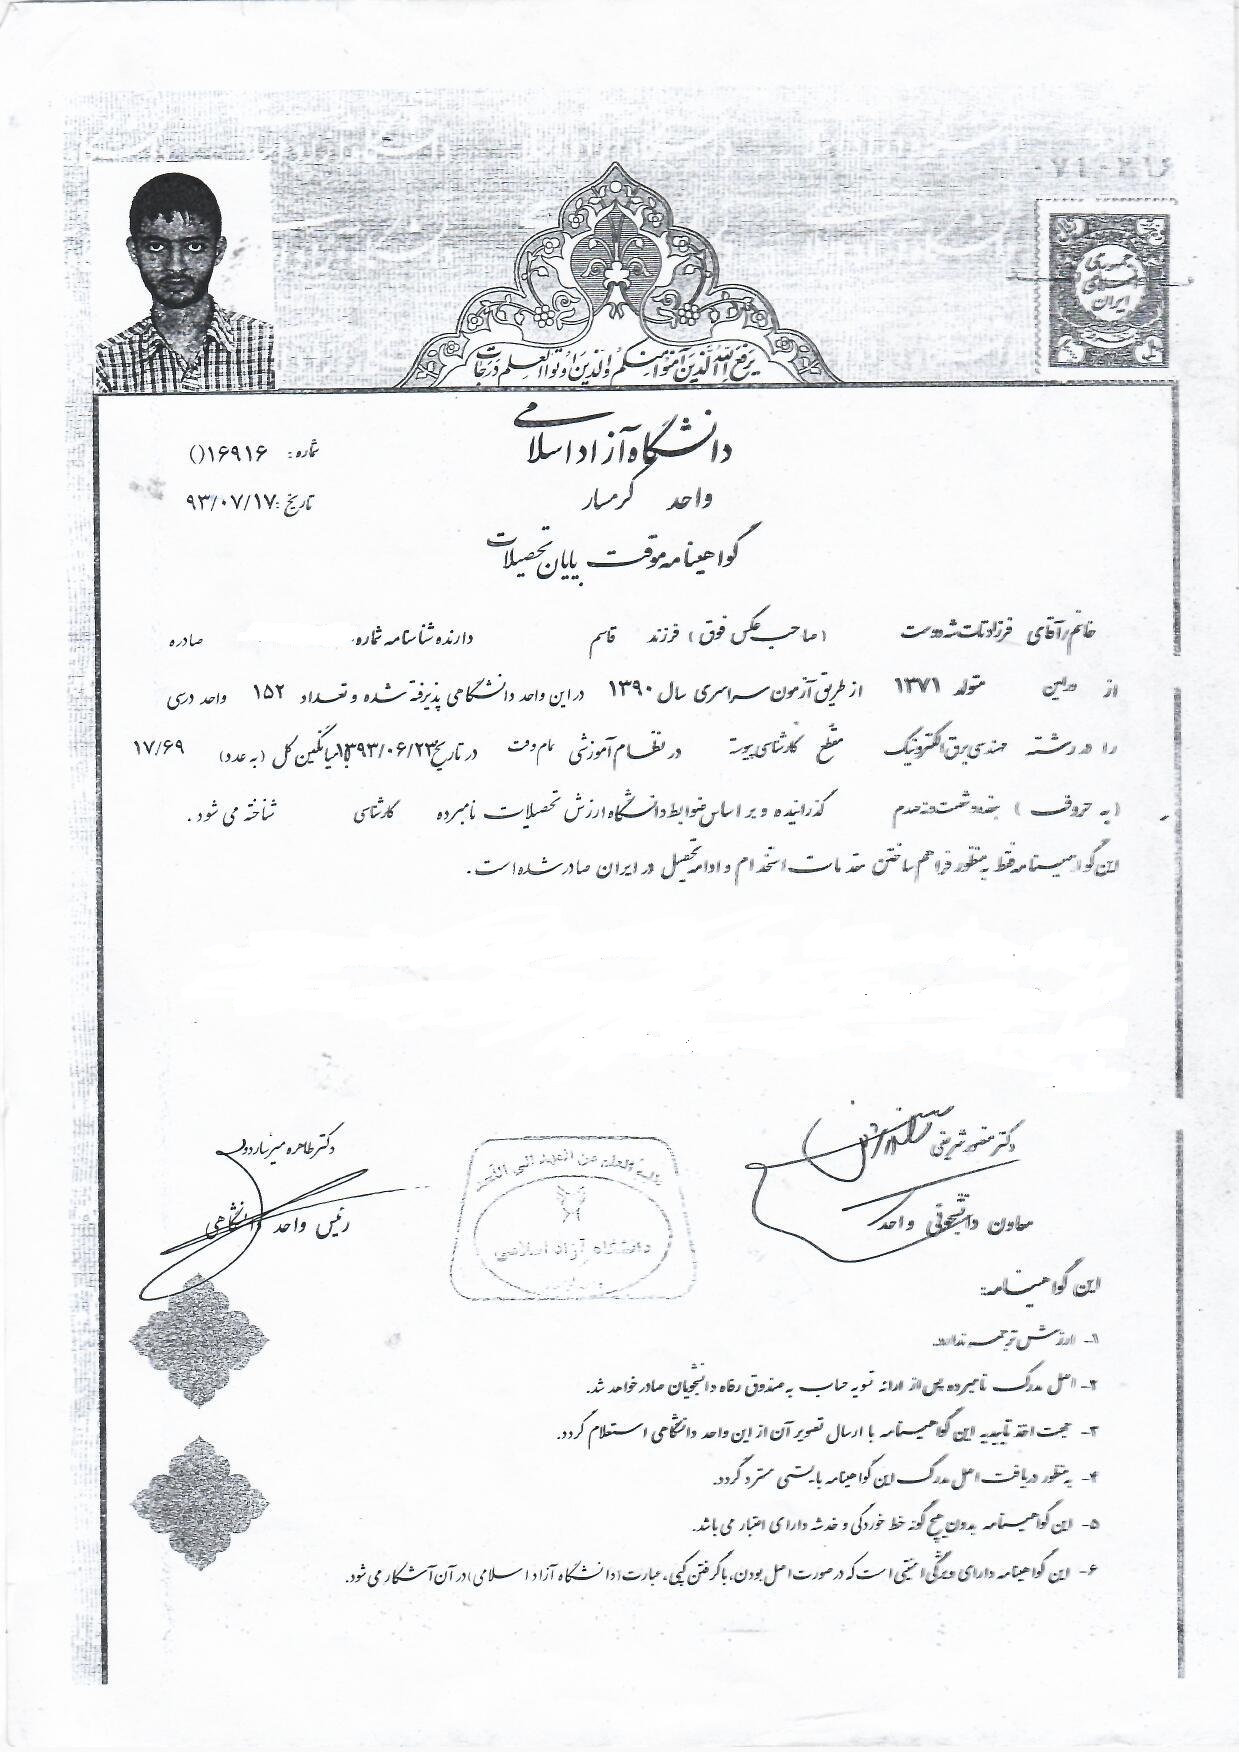 جمهوری
اسلامی
ایران
یرفع الله الذین آمنوا منکم والذین اوتوا العلم درجات
دانشگاه آزاد اسلامی
شماره: ۱۶۹۱۶()
واحد گرمسار
تاریخ: ۹۳/۰۷/۱۷
گواهینامه موقت پایان تحصیلات
خانم/آقای فرزاد (صاحب عکس فوق) فرزند قاسم دارنده شناسنامه شماره صادره
از متولد ۱۳۷۱ از طریق آزمون سراسری سال ۱۳۹۰ در این واحد دانشگاهی پذیرفته شده و تعداد ۱۵۲ واحد درسی
را در رشته مهندسی برق الکترونیک مقطع کارشناسی پیوسته در نظام آموزشی تمام وقت در تاریخ ۱۳۹۳/۰۶/۲۳ با میانگین کل (به عدد) ۱۷/۶۹
(به حروف) هفده و شصت و نه صدم گذرانیده و بر اساس ضوابط دانشگاه ارزش تحصیلات نامبرده کارشناسی شناخته می شود.
این گواهینامه فقط به منظور فراهم ساختن مقدمات استخدام و ادامه تحصیل در ایران صادر شده است.
دکتر منصور شریفی
معاون دانشجوئی واحد
دکتر طاهره
رئیس واحد دانشگاهی
دانشگاه آزاد اسلامی
این گواهینامه:
۱- ارزش ترجمه ندارد.
۲- اصل مدرک نامبرده پس از ارائه تسویه حساب به صندوق رفاه دانشجویان صادر خواهد شد.
۳- جهت اخذ تاییدیه این گواهینامه با ارسال تصویر آن از این واحد دانشگاهی استعلام گردد.
۴- به منظور دریافت اصل مدرک این گواهینامه بایستی مسترد گردد.
۵- این گواهینامه بدون هیچ گونه خط خوردگی و خدشه دارای اعتبار می باشد.
۶- این گواهینامه دارای ویژگی امنیتی است که در صورت اصل بودن، با گرفتن کپی، عبارت (دانشگاه آزاد اسلامی) در آن آشکار می شود.